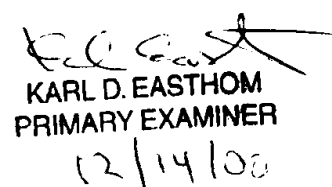 KARL D. EASTHOM
PRIMARY EXAMINER
12/14/00